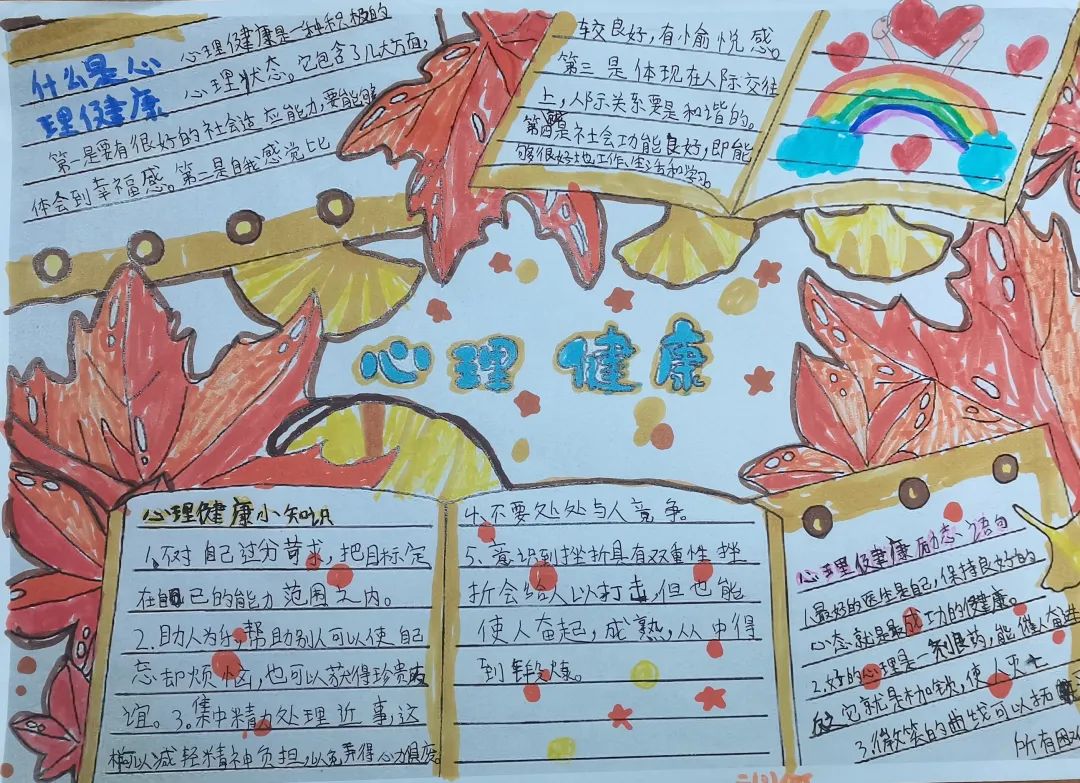 什么是心
理健康
心理健康是一种积极的
心理状态。它包含了几大方面,
第一是要有很好的社会适应能力,要能够
体会到幸福感。第二是自我感觉比
较良好,有愉悦感。
第三是体现在人际交往
上,人际关系要是和谐的。
第四是社会功能良好,即能
够很好地工作、生活和学习。
心理健康
心理健康小知识
1.不对自己过分苛求,把目标定
在自己的能力范围之内。
2.助人为乐,帮助别人可以使自己
忘却烦恼,也可以获得珍贵友
谊。3.集中精力处理近事,这
可以减轻精神负担,以免弄得心力
4.不要处处与人竞争。
5.意识到挫折具有双重性挫
折会给人以打击,但也能
使人奋起,成熟,从中得
到锻炼。
心理健康励志语句
1.最好的医生是自己,保持良好的
心态就是最成功的健康。
2.好的心理是一剂良药,能催人奋进
它就是枷锁,使人灭亡
3.微笑的曲线可以拓
所有